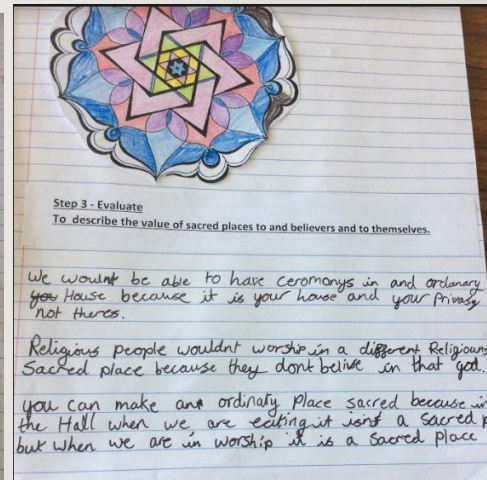 Step 3 - Evaluate
To describe the value of sacred places to and believers and to themselves.
We woulnt be able to have ceromonys in and ordanary
you House because it is your house and your Privasy
not theres.
Religious people wouldnt worship in a different Religiouns
Sacred place because they dont belive in that god.
you can make an ordinary Place sacred because in
the Hall when we are eating it isnt a sacred
but when we are in worship it is a Sacred place